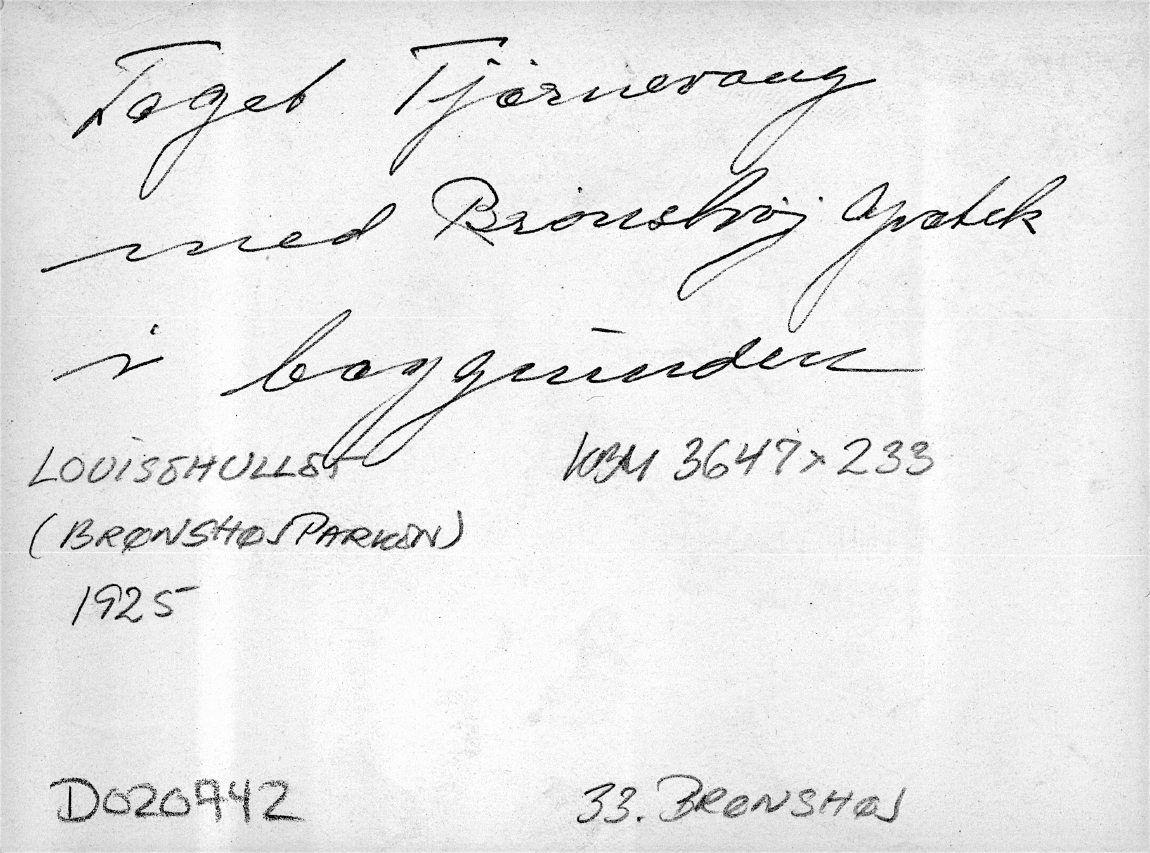 Taget Tjørnevang
med Brønshøj Apotek
i baggrunden
LOUISEHULLET KBM 3647 x 233
(BRØNSHØJPARKEN)
1925
D020742 33. BRØNSHØJ